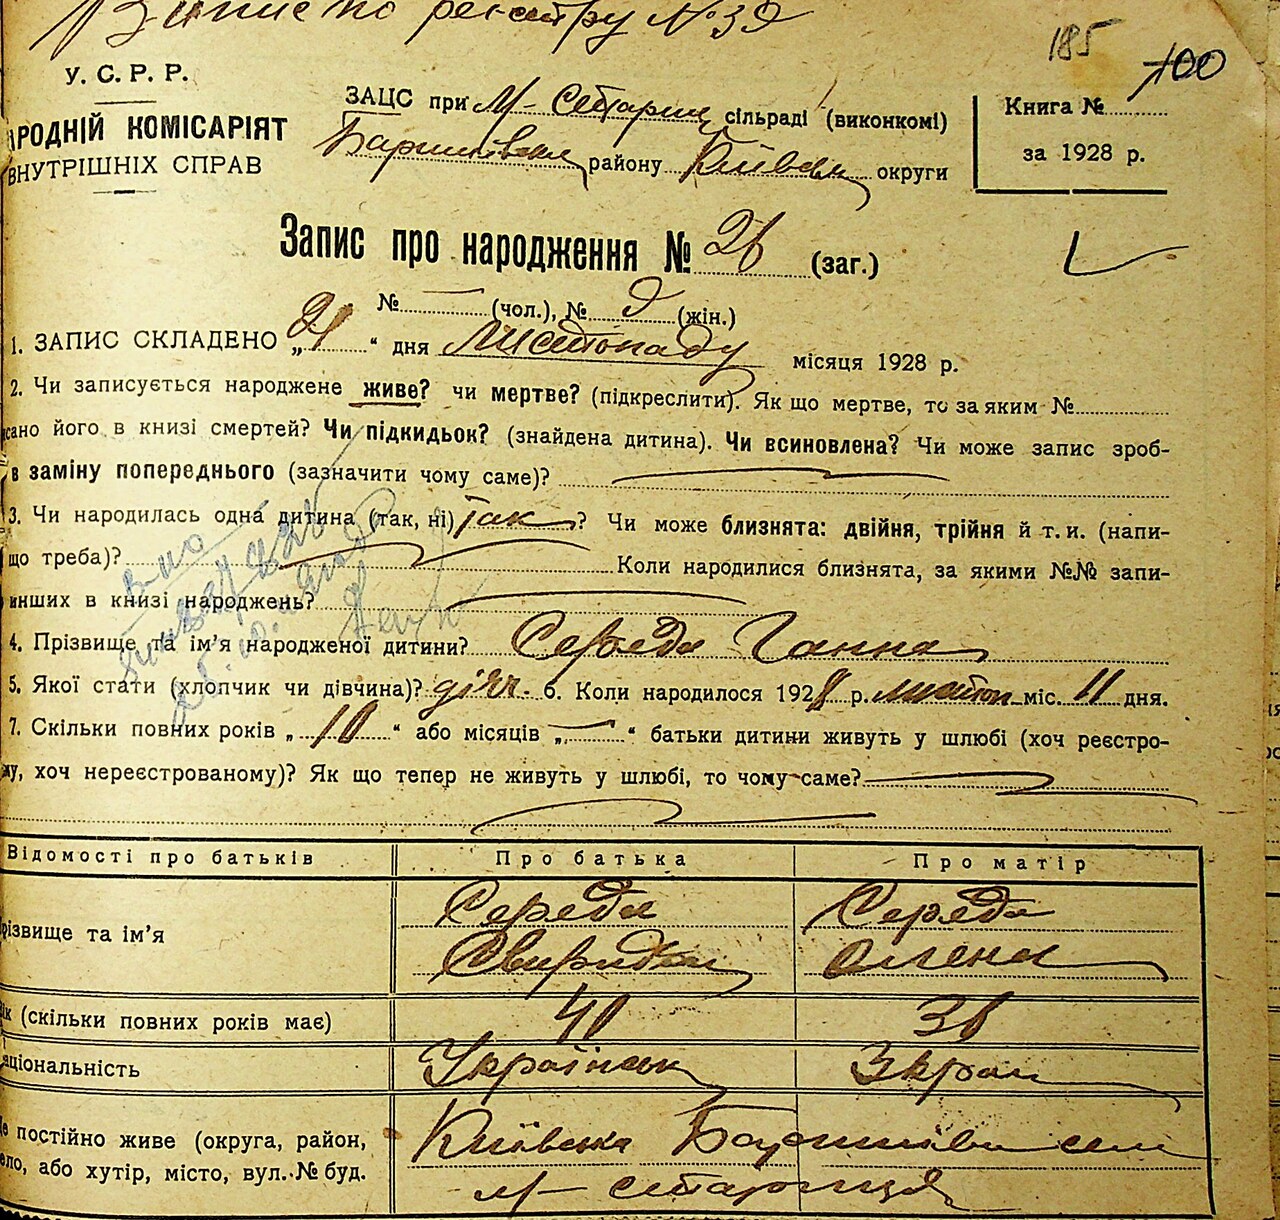 Запис по реєстру № 39
185 100
У. С. Р. Р.
АРОДНІЙ КОМІСАРІЯТ
ВНУТРІШНІХ СПРАВ
ЗАЦС при М-Стариц сільраді (виконкомі)
Баришівськ району Київськ округи
Книга №
за 1928 р.
Запис про народження № 26 (заг.)
№ — (чол.), № 9 (жін.)
1. ЗАПИС СКЛАДЕНО „21“ дня листопаду місяця 1928 р.
2. Чи записується народжене живе? чи мертве? (підкреслити). Як що мертве, то за яким №
сано його в книзі смертей? Чи підкидьок? (знайдена дитина). Чи всиновлена? Чи може запис зроб-
в заміну попереднього (зазначити чому саме)?
3. Чи народилась одна дитина (так, ні) так? Чи може близнята: двійня, трійня й т. и. (напи-
що треба)? Коли народилися близнята, за якими №№ запи-
инших в книзі народжень?
4. Прізвище та ім’я народженої дитини? Середа Ганна
5. Якої стати (хлопчик чи дівчина)? дівч. 6. Коли народилося 1928 р. листоп міс. 11 дня.
7. Скільки повних років „10“ або місяців „—“ батьки дитини живуть у шлюбі (хоч реєстро-
му, хоч нереєстрованому)? Як що тепер не живуть у шлюбі, то чому саме?
Відомості про батьків Про батька Про матір
різвище та ім’я Середа Середа
Свиридон Олена
ік (скільки повних років має) 40 36
аціональність Українськ Украи
е постійно живе (округа, район, Київська Баришівськ
ело, або хутір, місто, вул. № буд. м-стариця